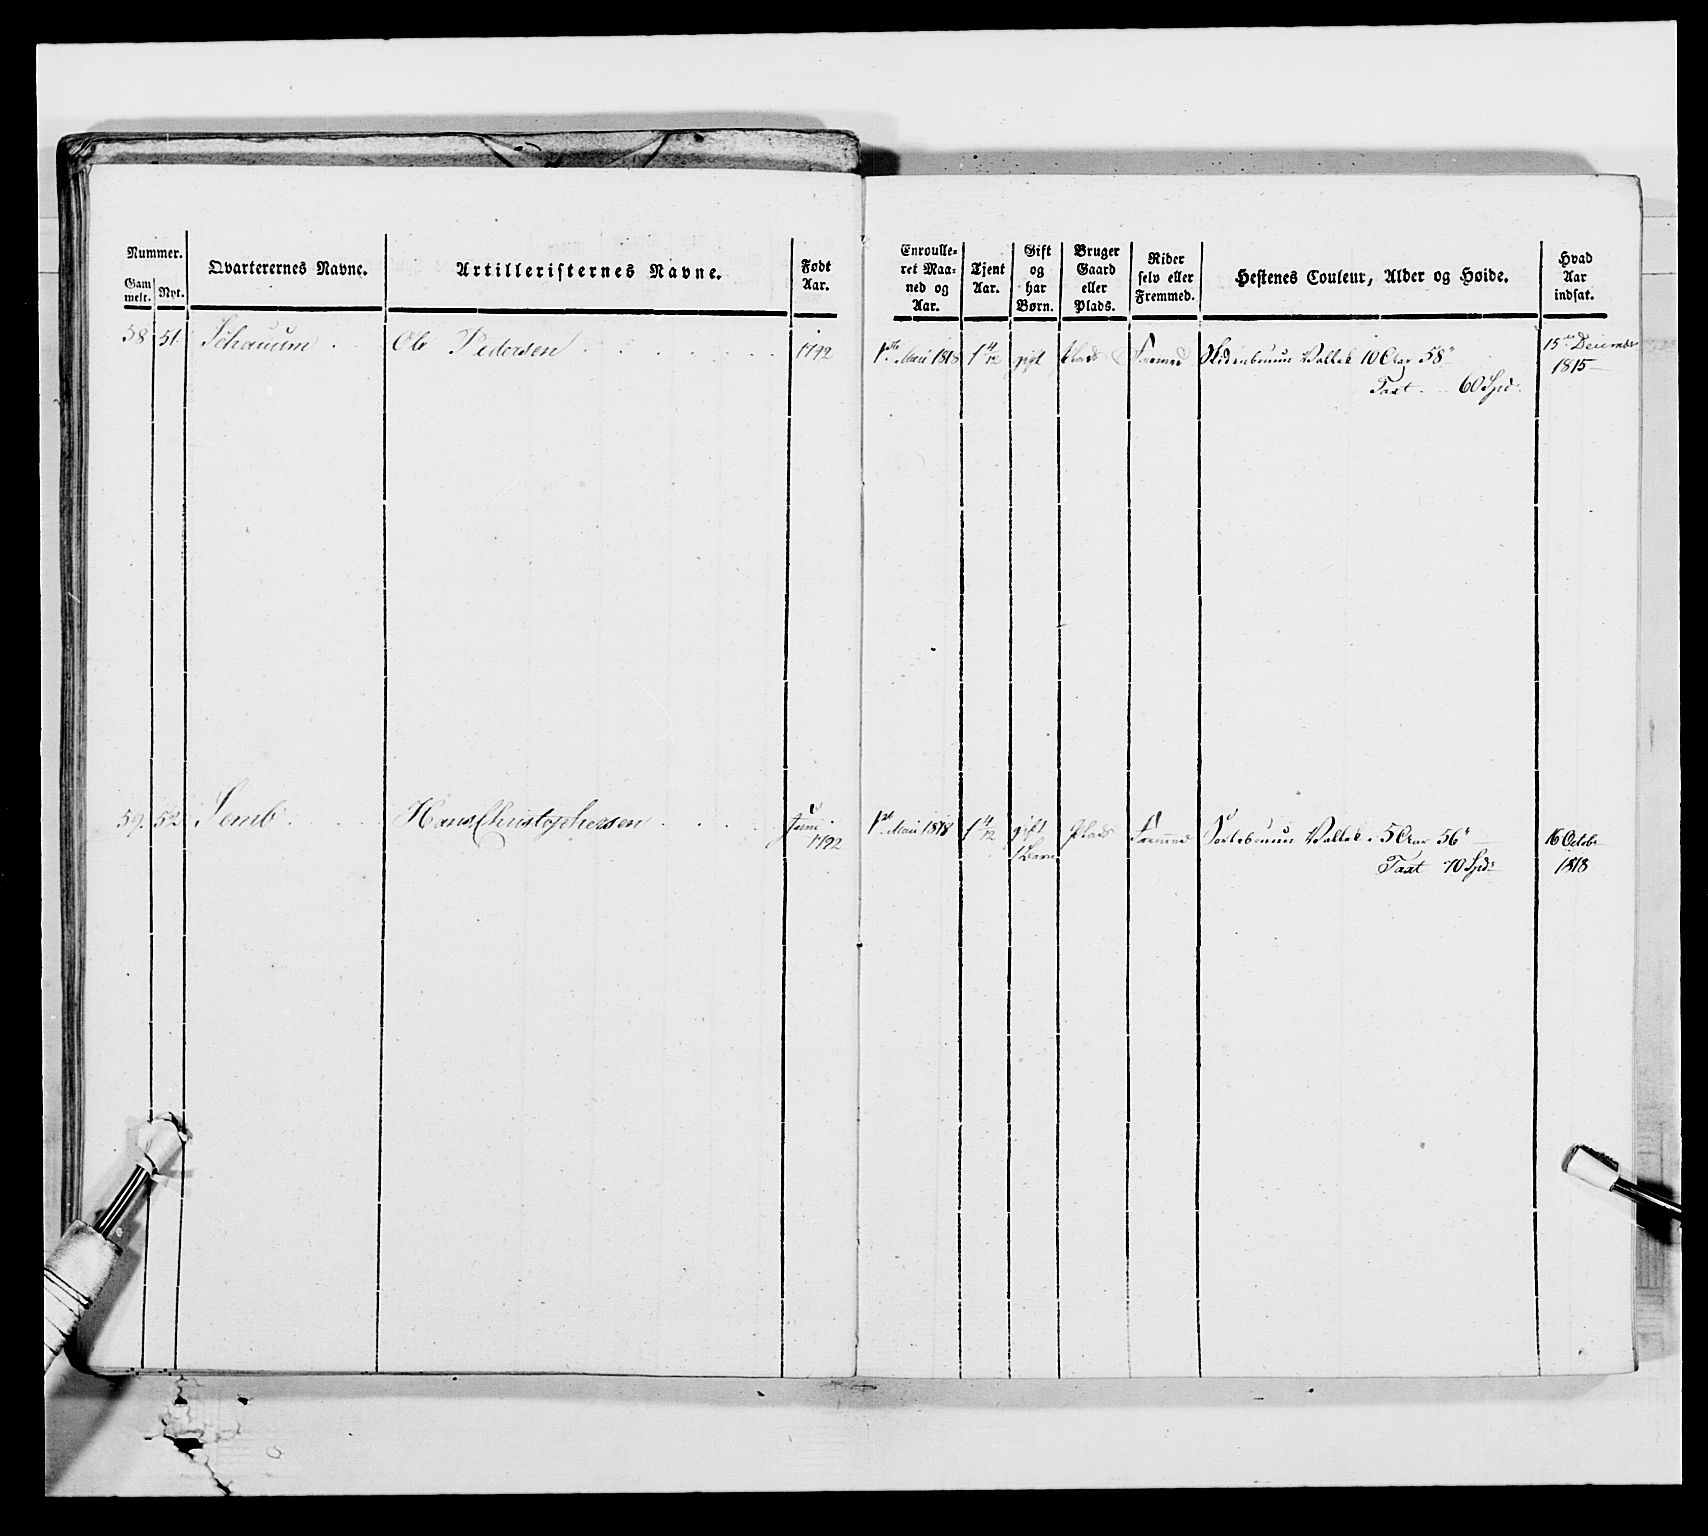 Nummer.
Gam melt.
Nyt.
Qvarterernes Navne.
Artilleristernes Navne.
Født Aar.
Enroulle-
ret Maa-
ned og
Aar.
Tjent
Aar.
Gift
og
har
Børn.
Bruger
Gaard
eller
Plads.
Rider
selv eller
Fremmed.
Hestenes Couleur, Alder og Høide.
Hvad
Aar
indsat.
58 51. Schauum Ole Pedersen 1792 1ste Maii 1818 1 4/12 gift Plads Fremed Vallak 10 Aar 58" 15de December
Taxt 60 Spd. 1815
59. 52 Semb Hans Christophersen Juni 1792 1ste Maii 1818 1 4/12 gift Plads Fremmed Sortebruun Vallak 5 Aar 56" 16 Octobr
1 Barn Taxt 70 Spd. 1818